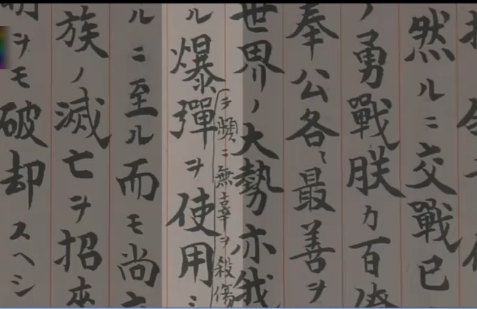 然ルニ交戰已
ノ勇戰朕カ百
奉公各〻最善ヲ
世界ノ大勢亦我
ヲ頻ニ無辜ヲ殺傷
ル爆彈ヲ使用
ルニ至ル而モ尚
族ノ滅亡ヲ招來
明ヲモ破却スヘシ